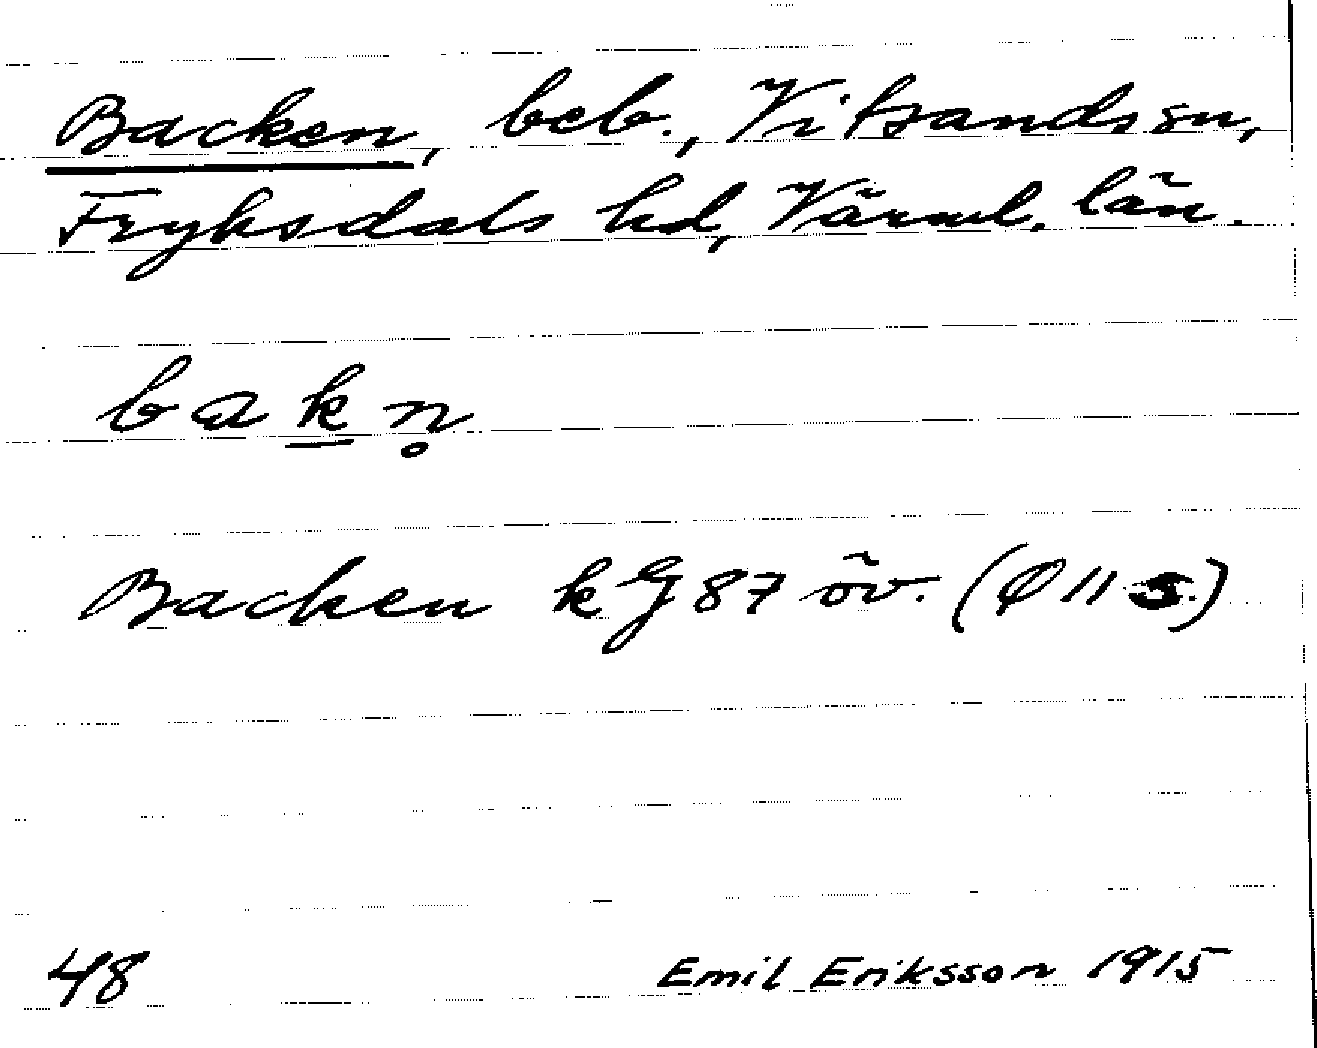 Backen, beb., Vitsands sn,
Fryksdals hd, Värml. län.
bakn̥
Backen kG 87 öv. (Ø 11 s.)
48 Emil Eriksson 1915